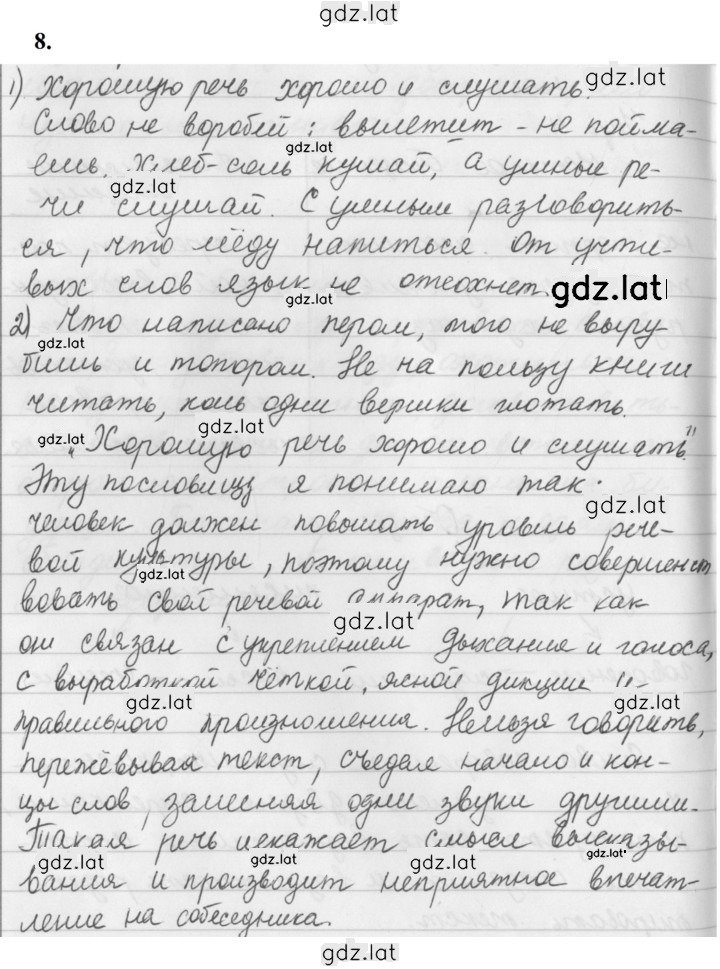 gdz.lat
8.
1) Хорошую речь хорошо и слушать. gdz.lat
Слово не воробей: вылетит - не пойма-
ешь. Хлеб-соль кушай, а умные ре-
gdz.lat gdz.lat
чи слушай. С умным разговорить-
ся, что мёду напиться. От учти-
вых слов язык не отсохнет. gdz.lat
gdz.lat
2) Что написано пером, того не выру-
gdz.lat
бишь и топором. Не на пользу книги
читать, коль одни вершки глотать.
gdz.lat gdz.lat
"Хорошую речь хорошо и слушать"
Эту пословицу я понимаю так:
gdz.lat
человек должен повышать уровень рече-
вой культуры, поэтому нужно совершенст
gdz.lat
вовать свой речевой аппарат, так как
gdz.lat
он связан с укреплением дыхания и голоса,
с выработкой чёткой, ясной дикции и
gdz.lat gdz.lat
правильного произношения. Нельзя говорить,
пережёвывая текст, съедая начало и кон-
цы слов, заменяя одни звуки другими.
Такая речь искажает смысл высказы-
gdz.lat gdz.lat gdz.lat
вания и производит неприятное впечат-
ление на собеседника.
gdz.lat